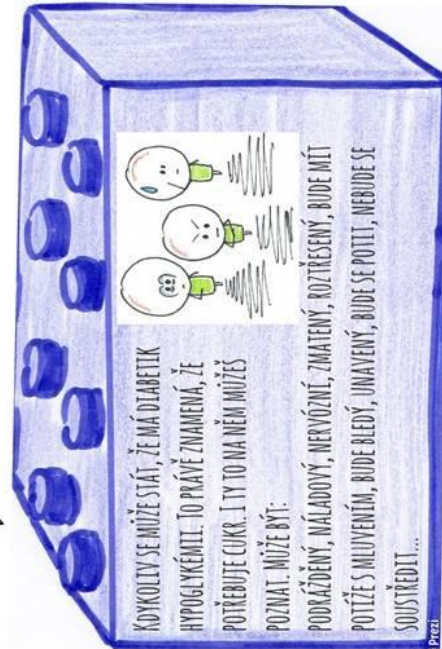 KDYKOLIV SE MŮŽE STÁT, ŽE MÁ DIABETIK
HYPOGLYKÉMII. TO PRÁVĚ ZNAMENÁ, ŽE
POTŘEBUJE CUKR. I TY TO NA NĚM MŮŽEŠ
POZNAT. MŮŽE BÝT:
PODRÁŽDĚNÝ, NÁLADOVÝ, NERVÓZNÍ, ZMATENÝ, ROZTŘESENÝ, BUDE MÍT
POTÍŽE S MLUVENÍM, BUDE BLEDÝ, UNAVENÝ, BUDE SE POTIT, NEBUDE SE
SOUSTŘEDIT...
Prezi